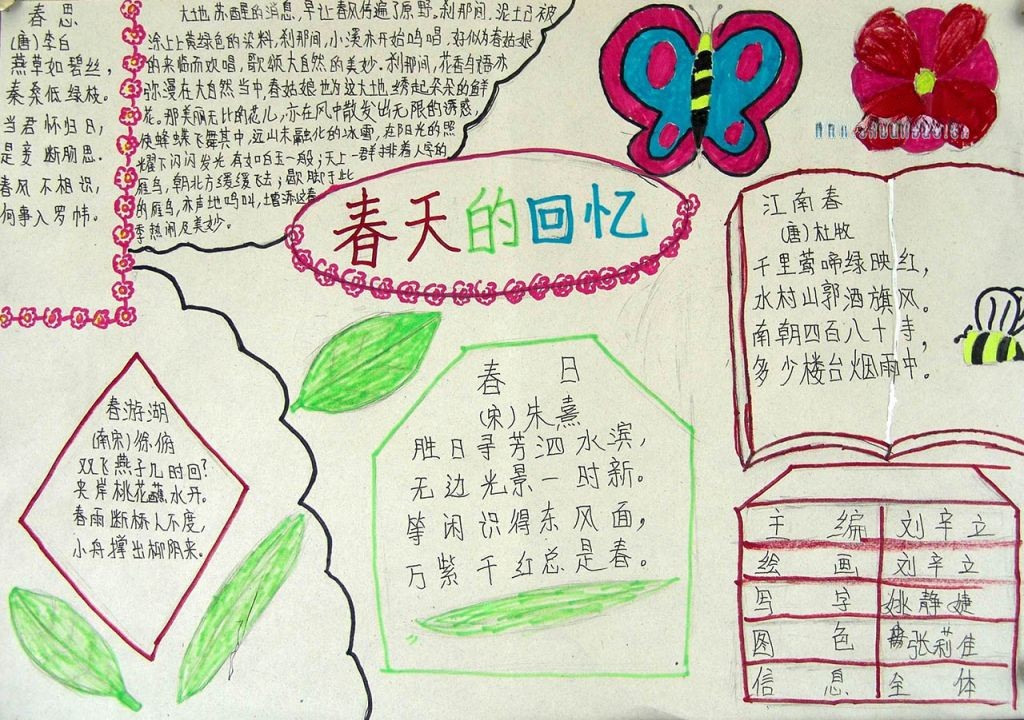 春思
(唐)李白
燕草如碧丝，
秦桑低绿枝。
当君怀归日，
是妾断肠思。
春风不相识，
何事入罗帏。
大地苏醒的消息，早让春风传遍了原野，刹那间，泥土已被
涂上上黄绿色的染料，刹那间，小溪亦开始鸣唱，好似为春姑娘
的来临而欢唱，歌颂大自然的美妙，刹那间，花香鸟语亦
弥漫在大自然当中，春姑娘也为这大地，绣起朵朵的鲜
花。那美丽无比的花儿，亦在风中散发出无限的诱惑，
使蜂蝶飞舞其中，远山未融化的冰雪，在阳光的照
耀下闪闪发光有如白玉一般；天上一群排着人字的
雁鸟，朝北方缓缓飞去；歇脚于此
的雁鸟，亦声地鸣叫，增添这春
季热闹及美妙。
春天的回忆
江南春
(唐)杜牧
千里莺啼绿映红，
水村山郭酒旗风。
南朝四百八十寺，
多少楼台烟雨中。
春游湖
(南宋)徐俯
双飞燕子几时回？
夹岸桃花蘸水开。
春雨断桥人不度，
小舟撑出柳阴来。
春 日
(宋)朱熹
胜日寻芳泗水滨，
无边光景一时新。
等闲识得东风面，
万紫千红总是春。
主 编 刘辛立
绘 画 刘辛立
写 字 姚静婕
图 色 张莉佳
信 息 全 体